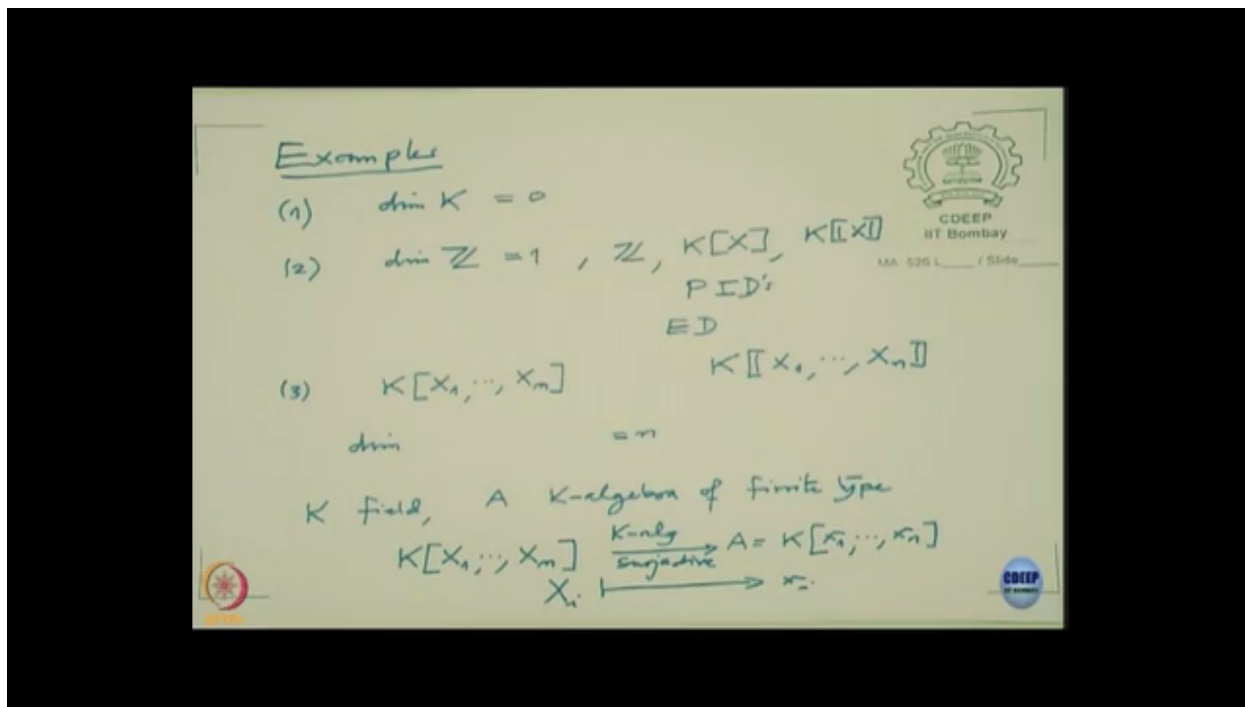 Examples
(1) dim K = 0
(2) dim ℤ = 1 , ℤ, K[X], K⟦X⟧
PID's
ED
(3) K[X₁, ..., Xₙ] K⟦X₁, ..., Xₙ⟧
dim = n
K field, A K-algebra of finite type
K[X₁, ..., Xₙ] K-alg surjective → A = K[x₁, ..., xₙ]
Xᵢ ↦ xᵢ
CDEEP
IIT Bombay
MA 526 L____ / Slide____
NPTEL
CDEEP
IIT BOMBAY